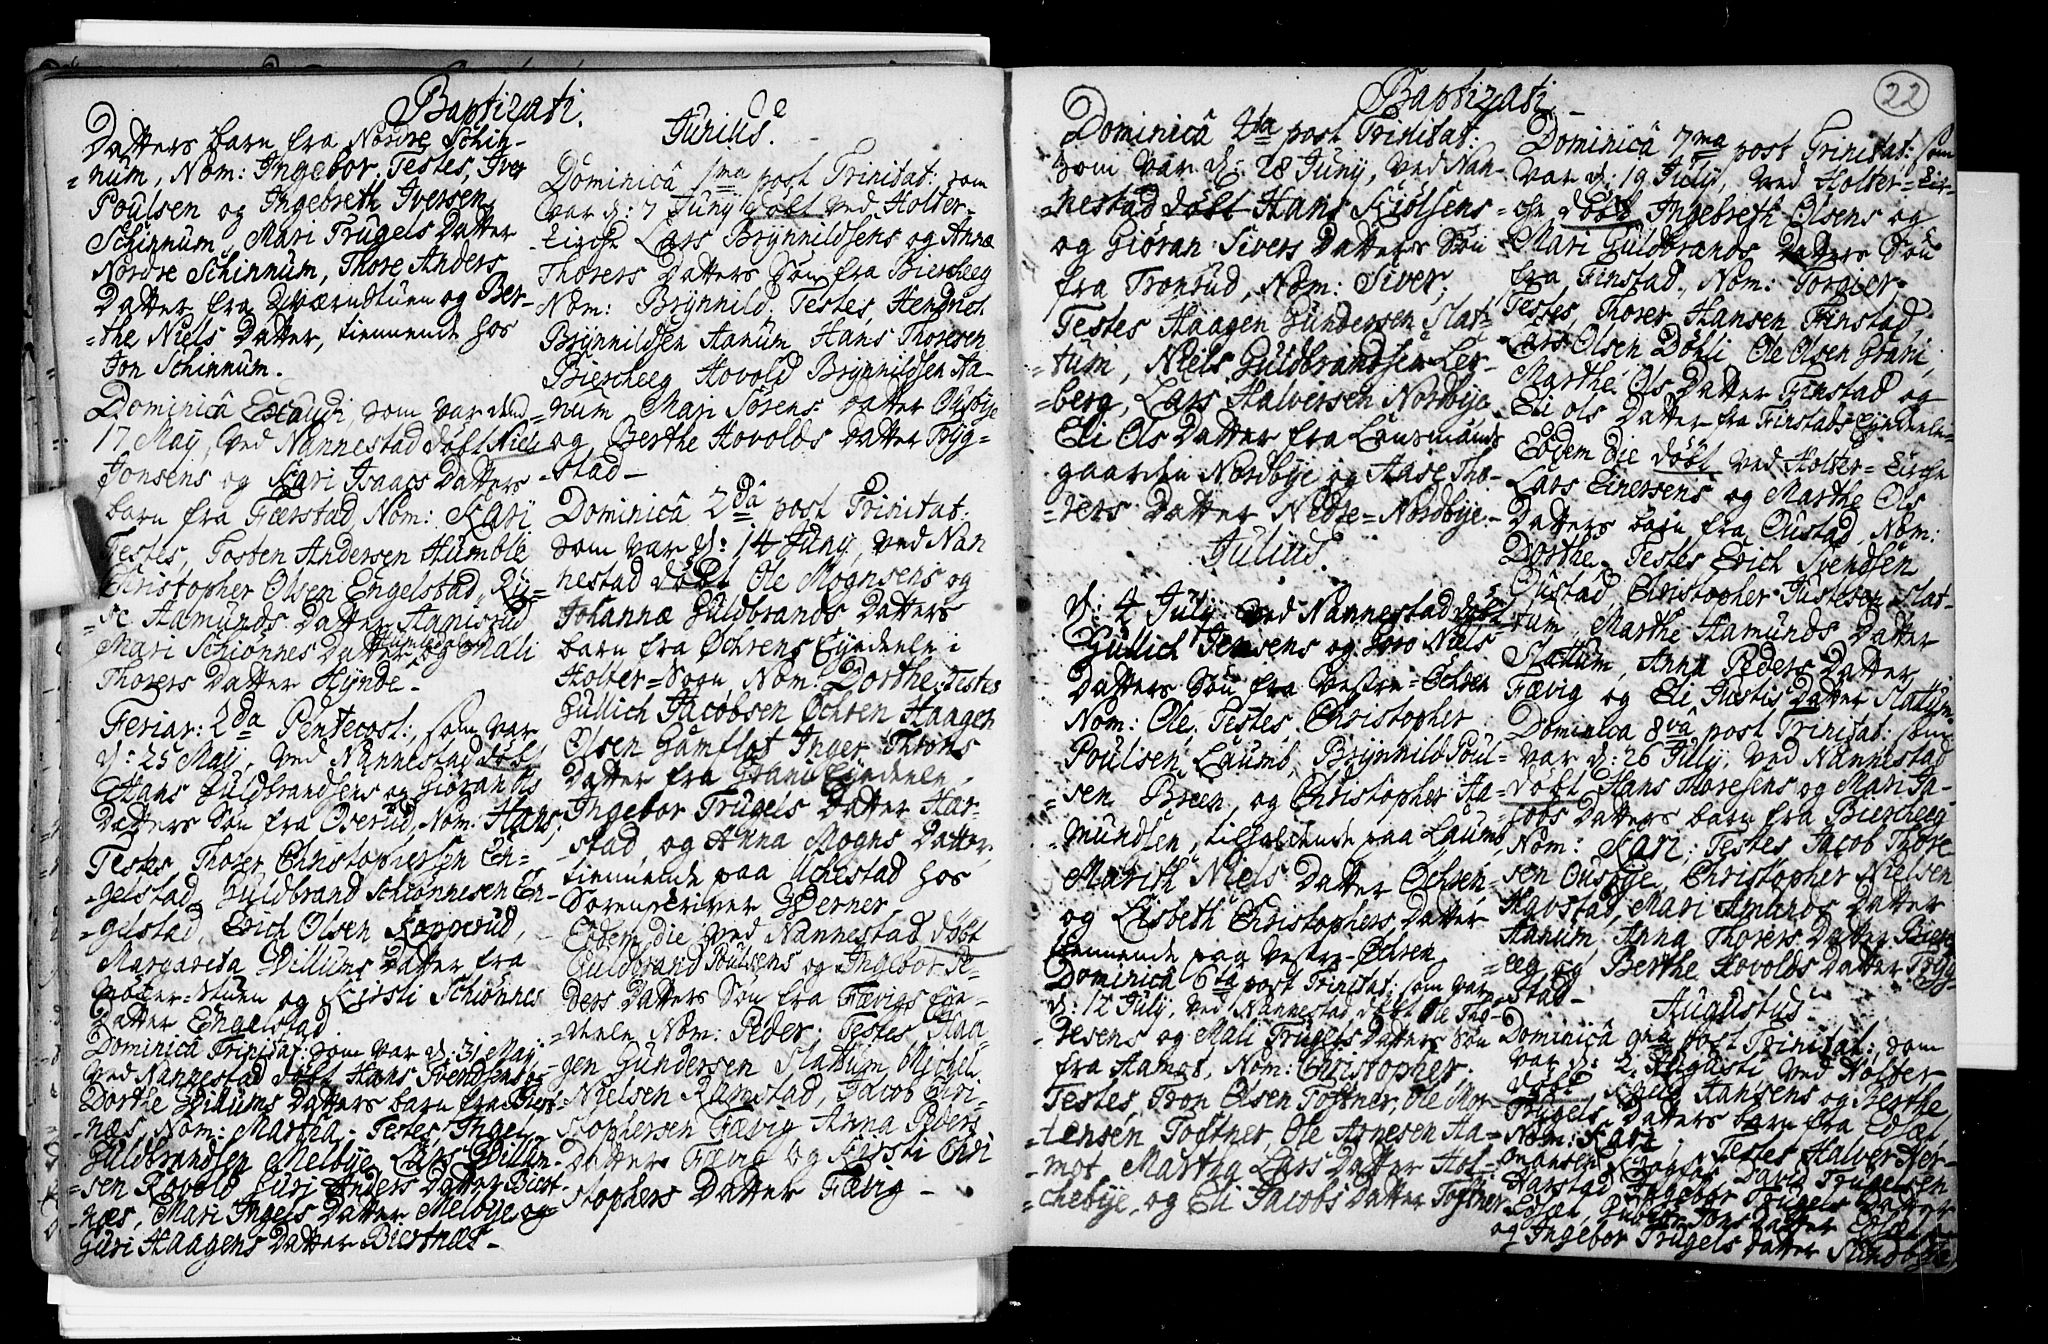 Baptizati.
Datters barn fra Nordre Schin-
=num, Nom: Ingebor. Testes, Iver
Poulsen og Ingebreth Iversen
Schinnum, Mari Trugels Datter
Nordre Schinnum, Thore Anders
Datter fra Qværndtuen og Ber-
=the Niels Datter, tiennende hos
Jon Schinnum.
Dominicâ Exaudi, som var dend
17 May, ved Nannestad døbt Niels
Jonsens og Kari Isaacs Datters
barn fra Færstad, Nom: Kari
Testes, Tosten Andersen Humble
Christopher Olsen Engelstad, Ru-
Aamunds Datter
Mari Schiønnes Datter og Mali
Thorers Datter Hÿnde-
Feriar: 2da Pentecost:, som var
d: 25 Maij, ved Nannestad døbt
Hans Guldbrandsens og Giøran Ols
Datters Søn fra Oserud, Nom: Hans,
Testes Thorer Christophersen En-
gelstad, Guldbrand Schiønnesen En-
=gelstad, Erich Olsen Kopperud,
Margareta Willums Datter fra
Moster-stuen og Kirsti Schiønnes
Datter Engelstad
Dominicâ Trinitat: som var d: 31 Maij
ved Nannestad døbt Hans Svendsens og
Dorthe Willums Datters barn fra Biert-
næs, Nom: Martha- Testes, Ingel
Guldbrandsen Melbÿe, Lars Willum-
=sen Rovold, Guri Anders Datter Biert-
næs, Mari Ingels Datter Melbÿe og
Guri Haagens Datter Biertnæs-
Junius.
Dominicâ 1ma post Trinitat: som
var d: 7 Junÿ døbt ved Holter-
Kirche Lars Brÿnnildsens og Anne
Thorers Datters Søn fra Biercheeg
Nom: Brÿnnild. Testes, Hendrich
Brÿnnildsen Aanum, Hans Thoresen
Biercheeg Hovold Brÿnnildsen Aa-
=num Mari Sørens: Datter Ousbÿe
og Berthe Hovolds Datter Trÿg-
-stad-
Dominicâ 2da post Trinitat:
som var d: 14 Junÿ, ved Nan
nestad døbt Ole Mognsens og
Johanna Guldbrands Datters
barn fra Øchrens Eÿndeele i
Holter=Sogn, Nom: Dorthe. Testes
Gullich Jacobsen Øchren Haagen
Olsen Gamflot Inger Throns
Datter fra Eÿendeele,
Ingebor Trugels Datter Har-
stad og Anna Mogns Datter,
tiennende paa Uchestad hos
Sorenscriver Werner
Eodem die, ved Nannestad døbt
Guldbrand Poulsens og Ingebor Pe-
ders Datters Søn fra Fævigs Eÿn-
deele Nom: Peder; Testes Haa-
gen Gundersen Slattum, Michel
Nielsen Ramstad, Jacob Chri-
stophersen Fævig Anna Peders
Datter Fævig og Kirsti Chri
stophers Datter Fævig-
Baptizati
22
Dominicâ 4ta post Trinitat:
som var d: 28 Junÿ, ved Nan-
=nestad døbt Hans Kiølsens
og Giøran Sivers Datters Søn
fra Tronsud, Nom: Siver.
Testes Haagen Gundersen Slat-
=tum, Niels Guldbrandsen Ler-
=berg, Lars Halversen Nordbÿe
Eli Ols Datter fra Lensmands
gaarden Nordbÿe og Aase Tho-
=rers Datter Nedre=Nordbÿe-
Julius.
d: 4 Julÿ ved Nannestad døbt
Gullich Jensens og Goro Niels
Datters Søn fra Vestre=Øchren
Nom: Ole. Testes. Christopher
Poulsen Laumb, Brÿnnild Poul=
=sen Breen, og Christopher Aa=
=mundsen, tilholdende paa Laumb,
Marith Niels Datter Øchren,
og Lisbeth Christophers Datter
tiennende paa Vestre-Øchren
Dominicâ 6ta post Trinitat: som var
d: 12 Julÿ, ved Nannestad døbt Ole Tho-
resens og Mali Trugels Datters Søn
fra Aamot, Nom: Christopher,
Testes, Tron Olsen Toftner, Ole Mor-
tensen Toftner, Ole Arnesen Aa=
=mot, Martha Lars Datter Hol-
=chebÿe, og Eli Jacobs Datter Toftner
Dominicâ 7ma post Trinitat: som
var d: 19 Julÿ, ved Holter=Kir-
che døbt Ingebreth Olsens og
Mari Guldbrands Datters Søn
fra Finstad, Nom: Torgier.
Testes, Thorer Hansen Finstad,
Lars Olsen Døhli, Ole Olsen Grani,
Marthe Ols Datter Finstad og
Eli Ols Datter fra Finstads Eÿndeele=
Eodem die døbt ved Holter=Kirche
Lars Einersens og Marthe Ols
Datters barn fra Oustad, Nom:
Dorthe. Testes Erich Svendsen
Oustad, Christopher Justesen Slat-
tum, Marthe Aamunds Datter
Slattum, Anna Peders Datter
Fævig og Eli Justis Datter Slattum-
Dominica 8va post Trinitat: som
var d: 26 Julÿ, ved Nannestad
døbt Hans Thoresens og Mari Ja-
cobs Datters barn fra Biercheeg
Nom: Kari; Testes Jacob Thore
sen Ousbÿe, Christopher Nielsen
Havstad, Mari Datter
Aanum, Anna Thorers Datter Bierc-
=eeg og Berthe Hovolds Datter Trÿg-
stad-
Augustus
Dominicâ 9na post Trinitat: som
var d: 2. Augusti ved Holter
døbt Hansens og Berthe
Trugels Datters barn fra
Nom: Kari. Testes Halver Her-
mansen, David Trugelsen
Harstad, Ingebor Trugels Datter
Jens Datter
og Ingebor Trugels Datter